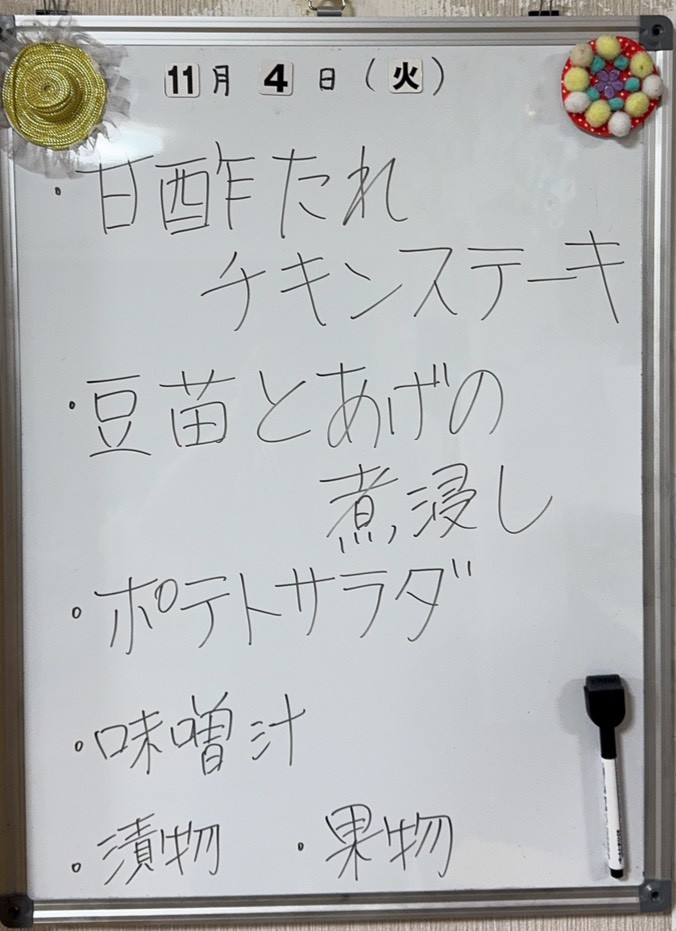 11月4日(火)
・甘酢たれ
チキンステーキ
・豆苗とあげの
煮浸し
・ポテトサラダ
・味噌汁
・漬物 ・果物